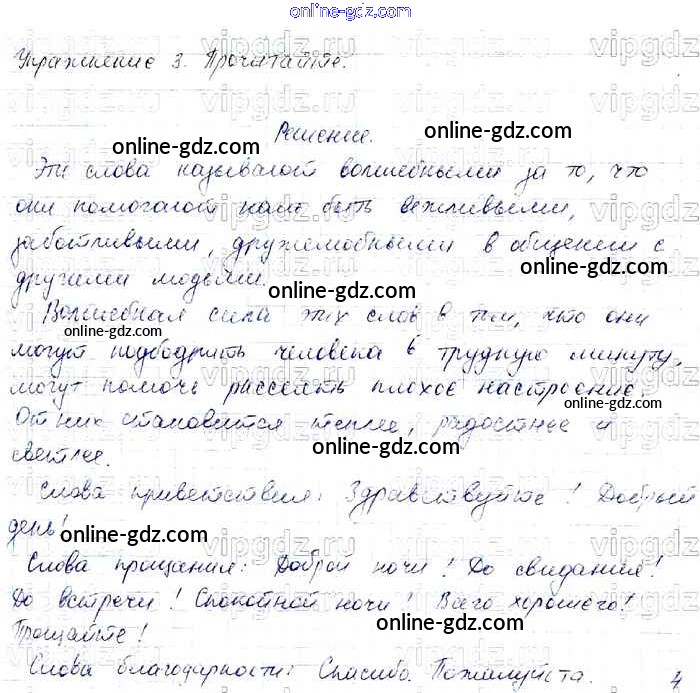 online-gdz.com
Упражнение 3. Прочитайте.
vipgdz.ru
Решение.
online-gdz.com
online-gdz.com
Эти слова называют волшебными за то, что
они помогают нам быть вежливыми,
online-gdz.com
заботливыми, дружелюбными в общении с
другими людьми.
online-gdz.com
online-gdz.com
Волшебная сила этих слов в том, что они
online-gdz.com
могут подбодрить человека в трудную минуту,
могут помочь рассеять плохое настроение.
online-gdz.com
От них становится теплее, радостнее и
светлее.
online-gdz.com
Слова приветствия: Здравствуйте! Добрый
день!
online-gdz.com
Слова прощания: Доброй ночи! До свидания!
До встречи! Спокойной ночи! Всего хорошего!
Прощайте!
online-gdz.com
Слова благодарности: Спасибо. Пожалуйста.
4